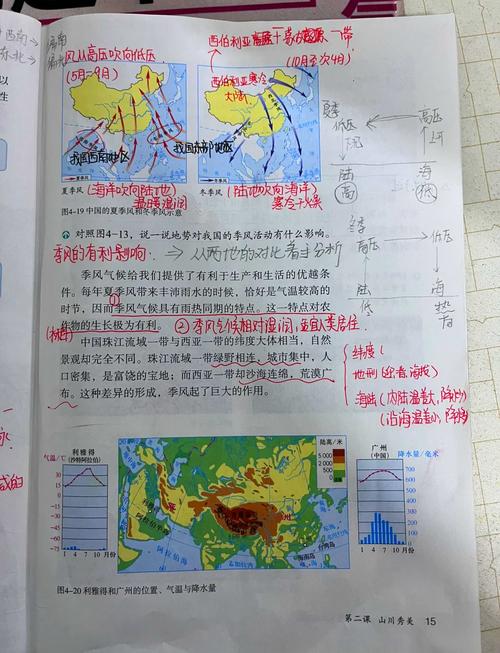 西南→
东北→
偏南
风从高压吹向低压
(5月~9月)
(10月至次4月)
西伯利亚寒冷
大陆
我国西南地区
我国东部地区
夏季风
(海洋吹向陆地)
温暖湿润
冬季风
(陆地吹向海洋)
寒冷干燥
图4-19 中国的夏季风和冬季风示意
夏季
低压
高压
下沉
上升
陆
海
高
低
冬季
高压
低压
陆
海
低
热
高
对照图4-13，说一说地势对我国的季风活动有什么影响。
季风的有利影响：
⇒ 从两地的对比着手分析
季风气候给我们提供了有利于生产和生活的优越条
件。每年夏季风带来丰沛雨水的时候，恰好是气温较高的
时节，因而①季风气候具有雨热同期的特点。这一特点对农
作物的生长极为有利。
②季风气候相对湿润，适宜人类居住．
中国珠江流域一带与西亚一带的纬度大体相当，自然
景观却完全不同。珠江流域一带绿野相连、城市集中，人
口密集，是富饶的宝地；而西亚一带却沙海连绵，荒漠广
布。这种差异的形成，季风起了巨大的作用。
纬度
地形
海陆(内陆温差大,降水少)
(沿海温差小,降水多)
利雅得
(沙特阿拉伯)
气温/℃
30
15
0
-15
-30
-45
-60
-75
1 4 7 10 月份
陆高/米
5 000
2 000
阿拉伯海
孟加拉湾
东海
台湾岛
南海
海南岛
广州
(中国)
降水量/毫米
700
600
500
400
300
200
100
0
1 4 7 10 月份
图4-20 利雅得和广州的位置、气温与降水量
第二课 山川秀美 15